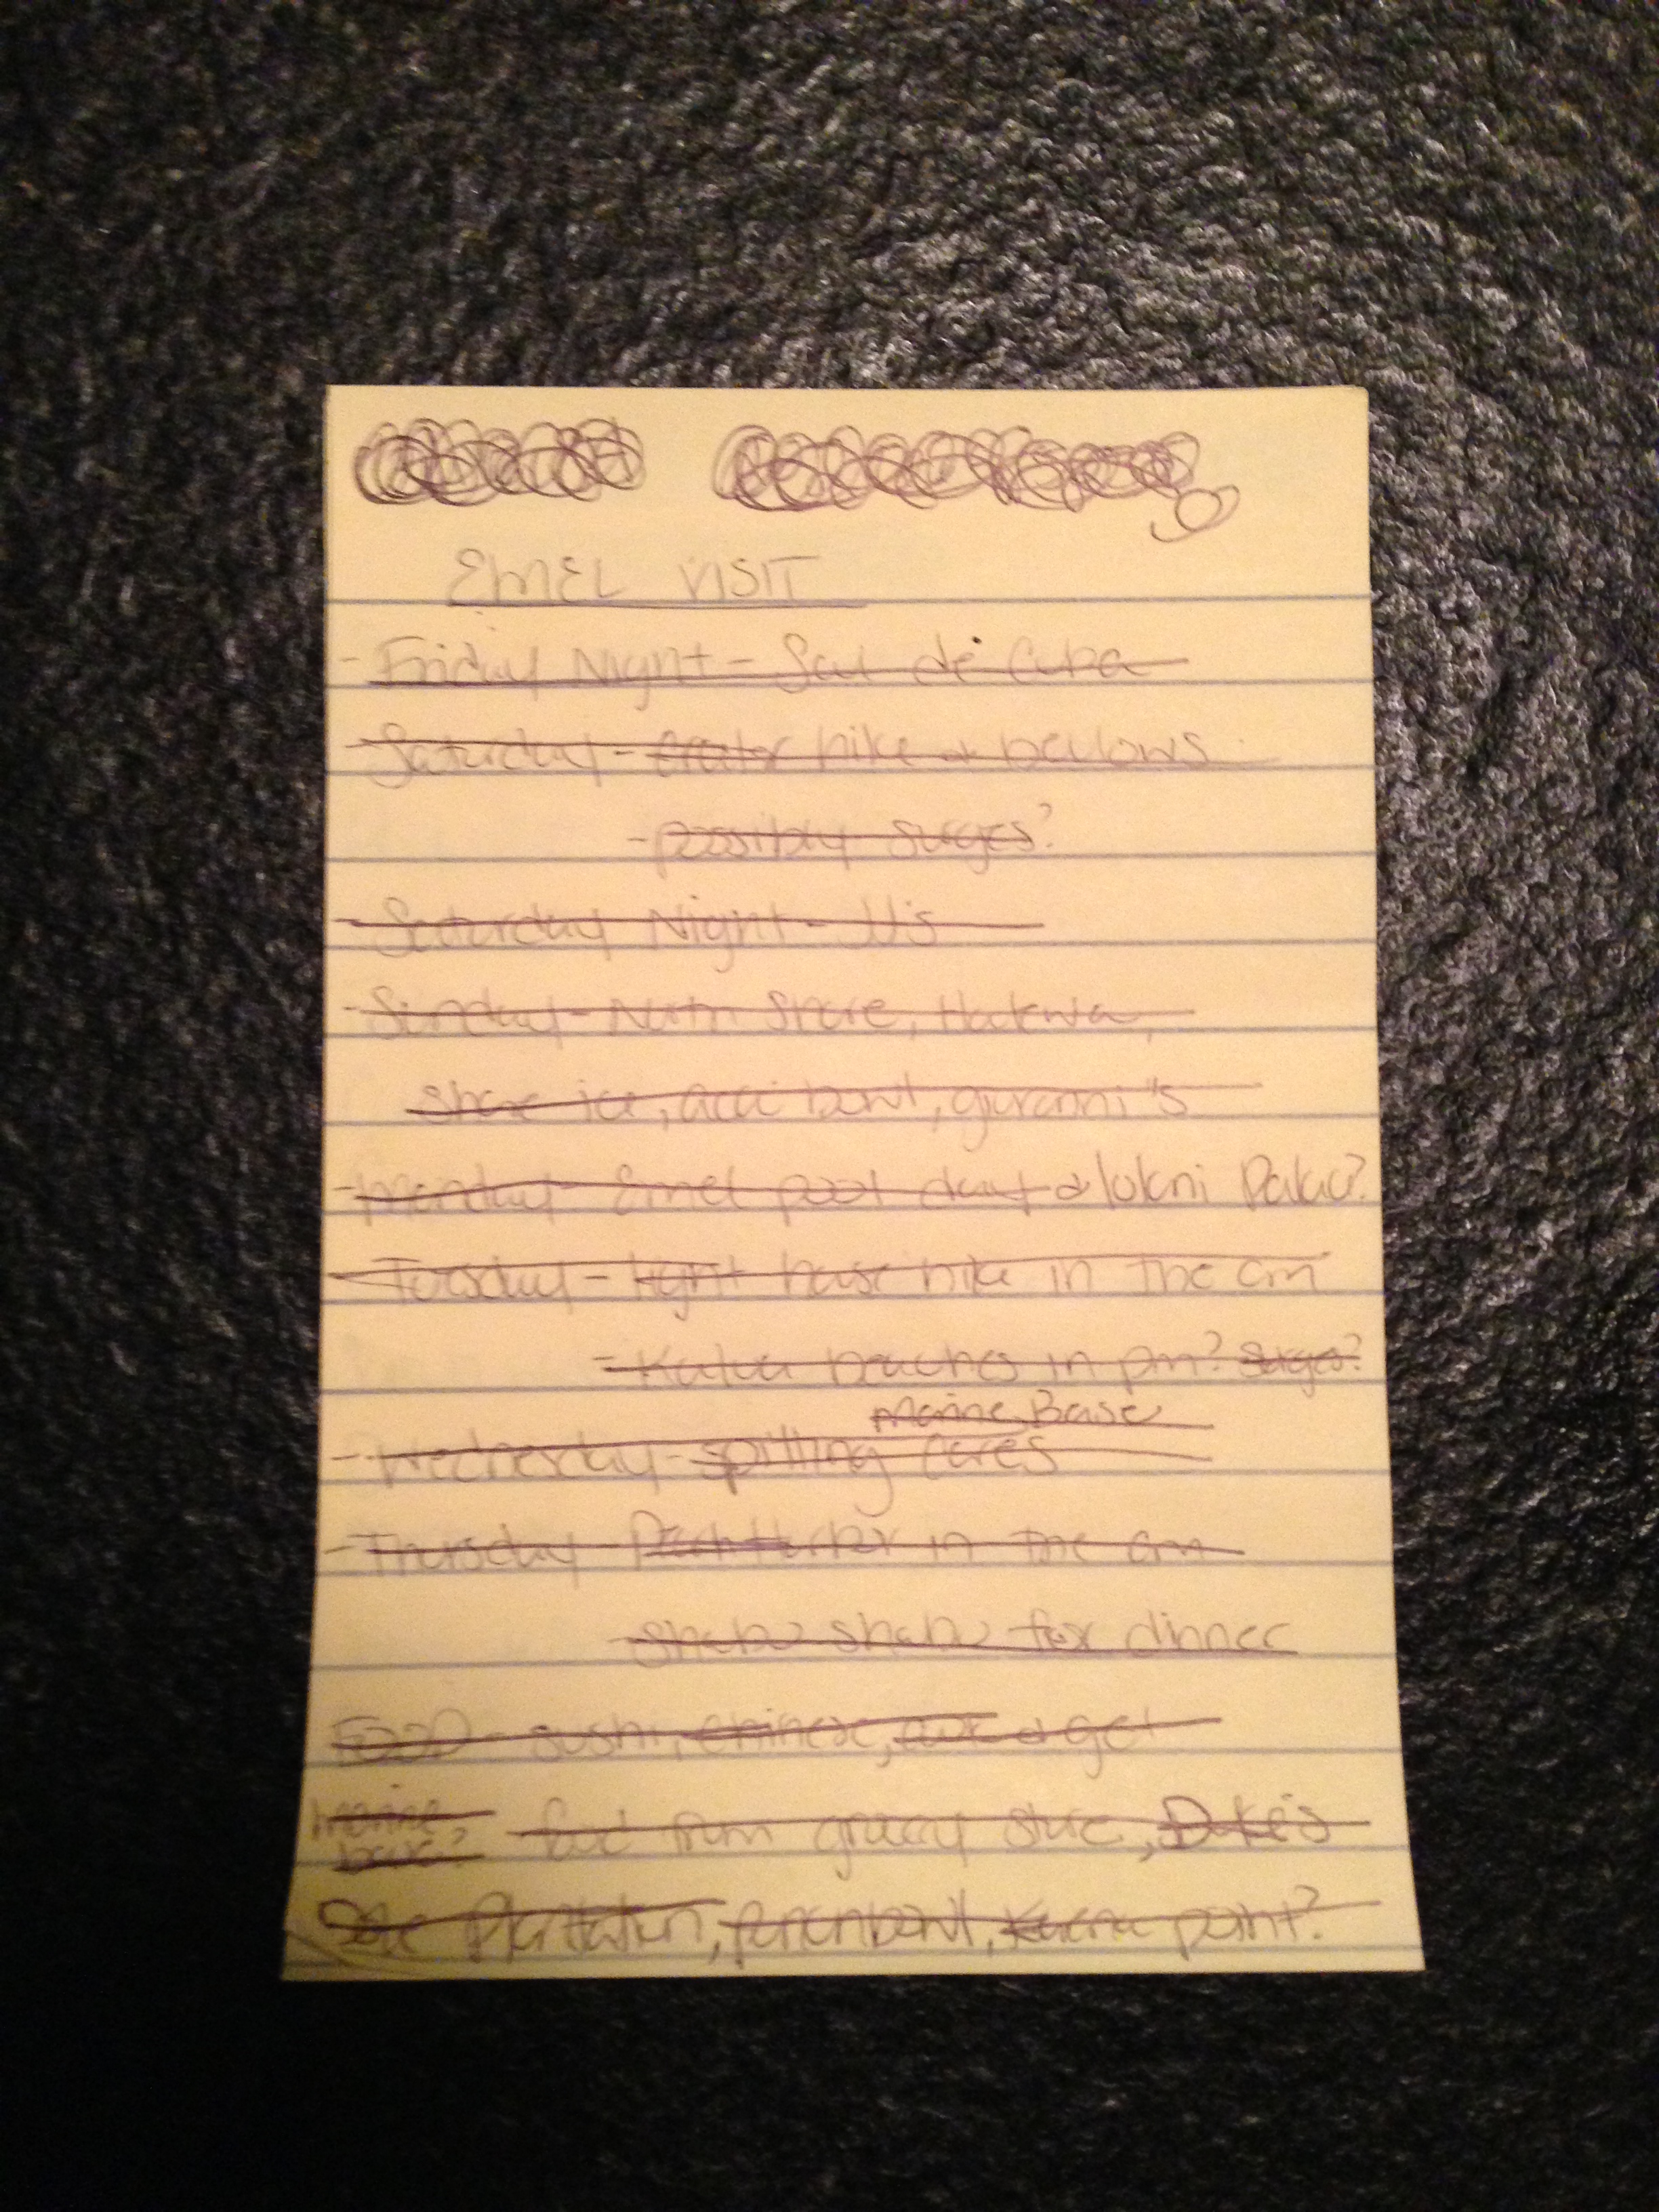 EMEL VISIT
- Friday Night - Sal de Cuba
- Saturday - Crater hike & bellows
- possibly surges?
- Saturday Night - JJ's
- Sunday - North Shore, Haleiwa,
shave ice, acai bowl, giovanni's
- Monday - Emel pool day & Iolani Palac?
- Tuesday - light house hike in the am
- Kailua beaches in pm? surges?
Marine Base
- Wednesday - spitting caves
- Thursday Pearl Harbor in the am
- shabu shabu for dinner
FOOD - sushi, chinese,
marine base? food from grocery store, Duke's
Dole Plantation, punchbowl, Kaena point?